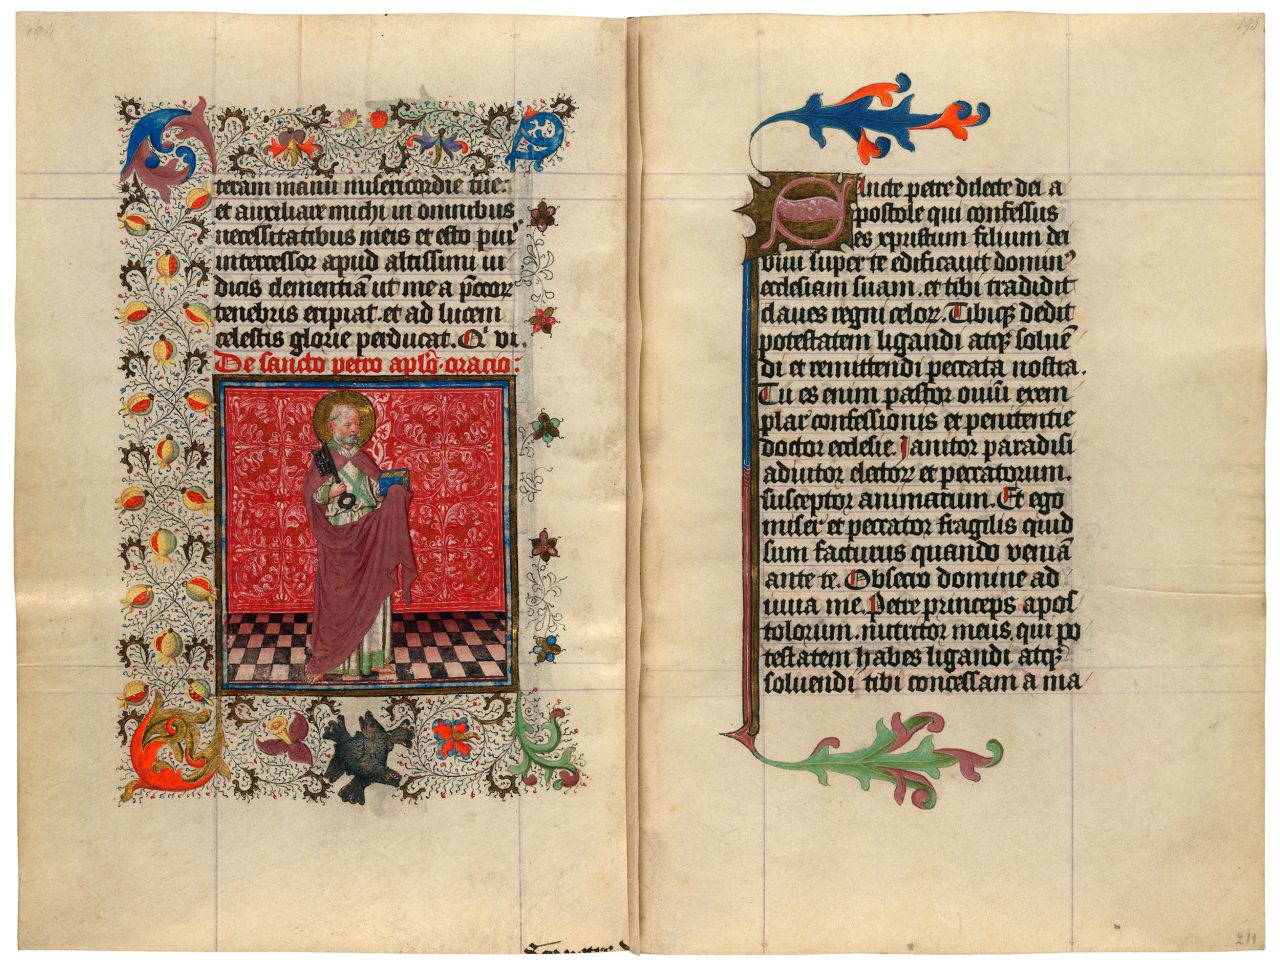 194
teram manū misericordie tue:
et auxiliare michi in omnibus
necessitatibus meis et esto pius
intercessor apud altissimi iu
dicis clementiā ut me a pctōr
tenebris eripiat. et ad lucem
celestis glorie perducat. Qͥ vi.
De sancto petro aplō. oratio:
195
Sancte petre dilecte dei a
postole qui confessus
es xpristum filium dei
vivi super te edificavit domin⁹
ecclesiam suam. et tibi tradidit
claves regni celoꝝ. Tibiqꝫ dedit
potestatem ligandi atqꝫ solvē
di et remittendi peccata nostra.
Tu es enim pastor oviū exem
plar confessionis et penitentie
doctor ecclesie. Janitor paradisi
adiutor electoꝝ et peccatorum.
susceptor animarum. Et ego
miser et peccator fragilis quid
sum facturus quando veniā
ante te. Obsecro domine ad
iuva me. Petre princeps apos
tolorum. nutritor meus, qui po
testatem habes ligandi atqꝫ
solvendi tibi concessam a ma
211